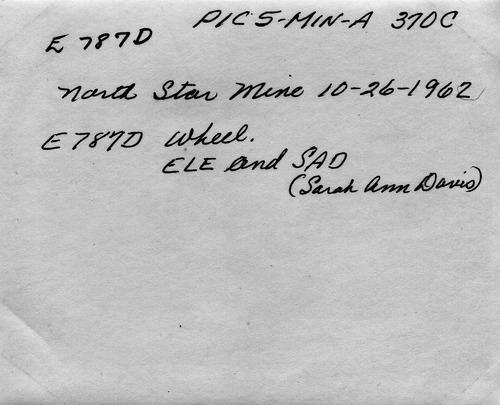 PIC 5-MIN-A 370C
E 787D
North Star Mine 10-26-1962
E787D Wheel.
ELE and SAD
(Sarah Ann Davis)